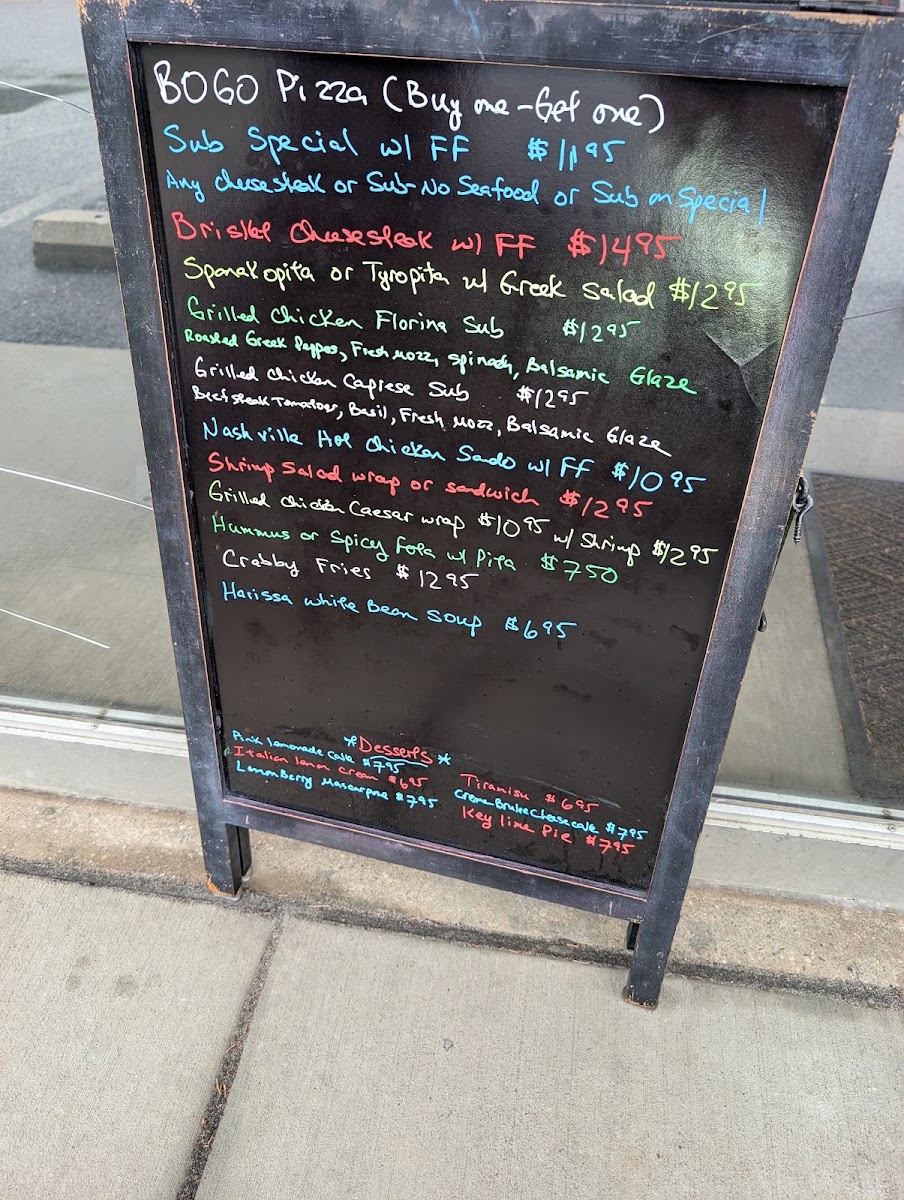 BOGO Pizza (Buy one - Get one)
Sub Special w/ FF $11.95
Any cheesesteak or Sub - No Seafood or Sub on Special
Brisket cheesesteak w/ FF $14.95
Spanakopita or Tyropita w/ Greek Salad $12.95
Grilled Chicken Florina Sub $12.95
Roasted Greek Peppers, Fresh mozz, spinach, Balsamic Glaze
Grilled Chicken Caprese Sub $12.95
Beefsteak Tomatoes, Basil, Fresh mozz, Balsamic Glaze
Nashville Hot Chicken Sando w/ FF $10.95
Shrimp Salad wrap or sandwich $12.95
Grilled chicken Caesar wrap $10.95 w/ Shrimp $12.95
Hummus or Spicy feta w/ Pita $7.50
Crabby Fries $12.95
Harissa white Bean Soup $6.95
*Desserts*
Pink lemonade cake $7.95
Italian lemon cream $6.95
LemonBerry Mascarpone $7.95
Tiramisu $6.95
Creme Brulee Cheesecake $7.95
Key lime Pie $7.95